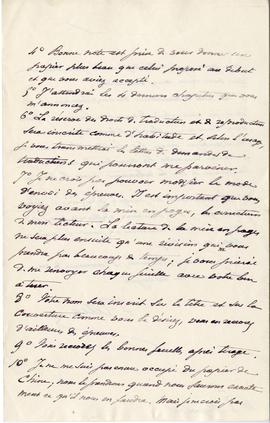 4° Bonne note est prise de vous donner un
papier plus beau que celui proposé au début
et que vous aviez accepté.
5° J'attendrai les 4 derniers chapitres que vous
m'annoncez.
6° La réserve des droits de traduction et de reproduction
sera inscrite comme d'habitude et selon l'usage
je vous transmettrai les lettres de demandes de
traductions qui pourront me parvenir.
7° Je ne crois pas pouvoir modifier le mode
d'envoi des épreuves. Il est important que vous
voyiez avant la mise en pages, les corrections
de mon lecteur. La lecture de la mise en pages
ne sera plus ensuite qu'une révision qui vous
prendra pas beaucoup de temps; je vous prierai
de me renvoyer chaque feuille avec votre bon
à tirer.
8° Votre nom sera inscrit sur le titre et sur la
couverture comme vous le désirez, vous en recevrez
d'ailleurs les épreuves.
9° Vous recevrez les bonnes feuilles, après tirage.
10° Je ne me suis pas encore occupé du papier de
Chine, nous le prendrons quand nous saurons exacte-
ment ce qu'il nous en faudra. Mais je ne crois pas